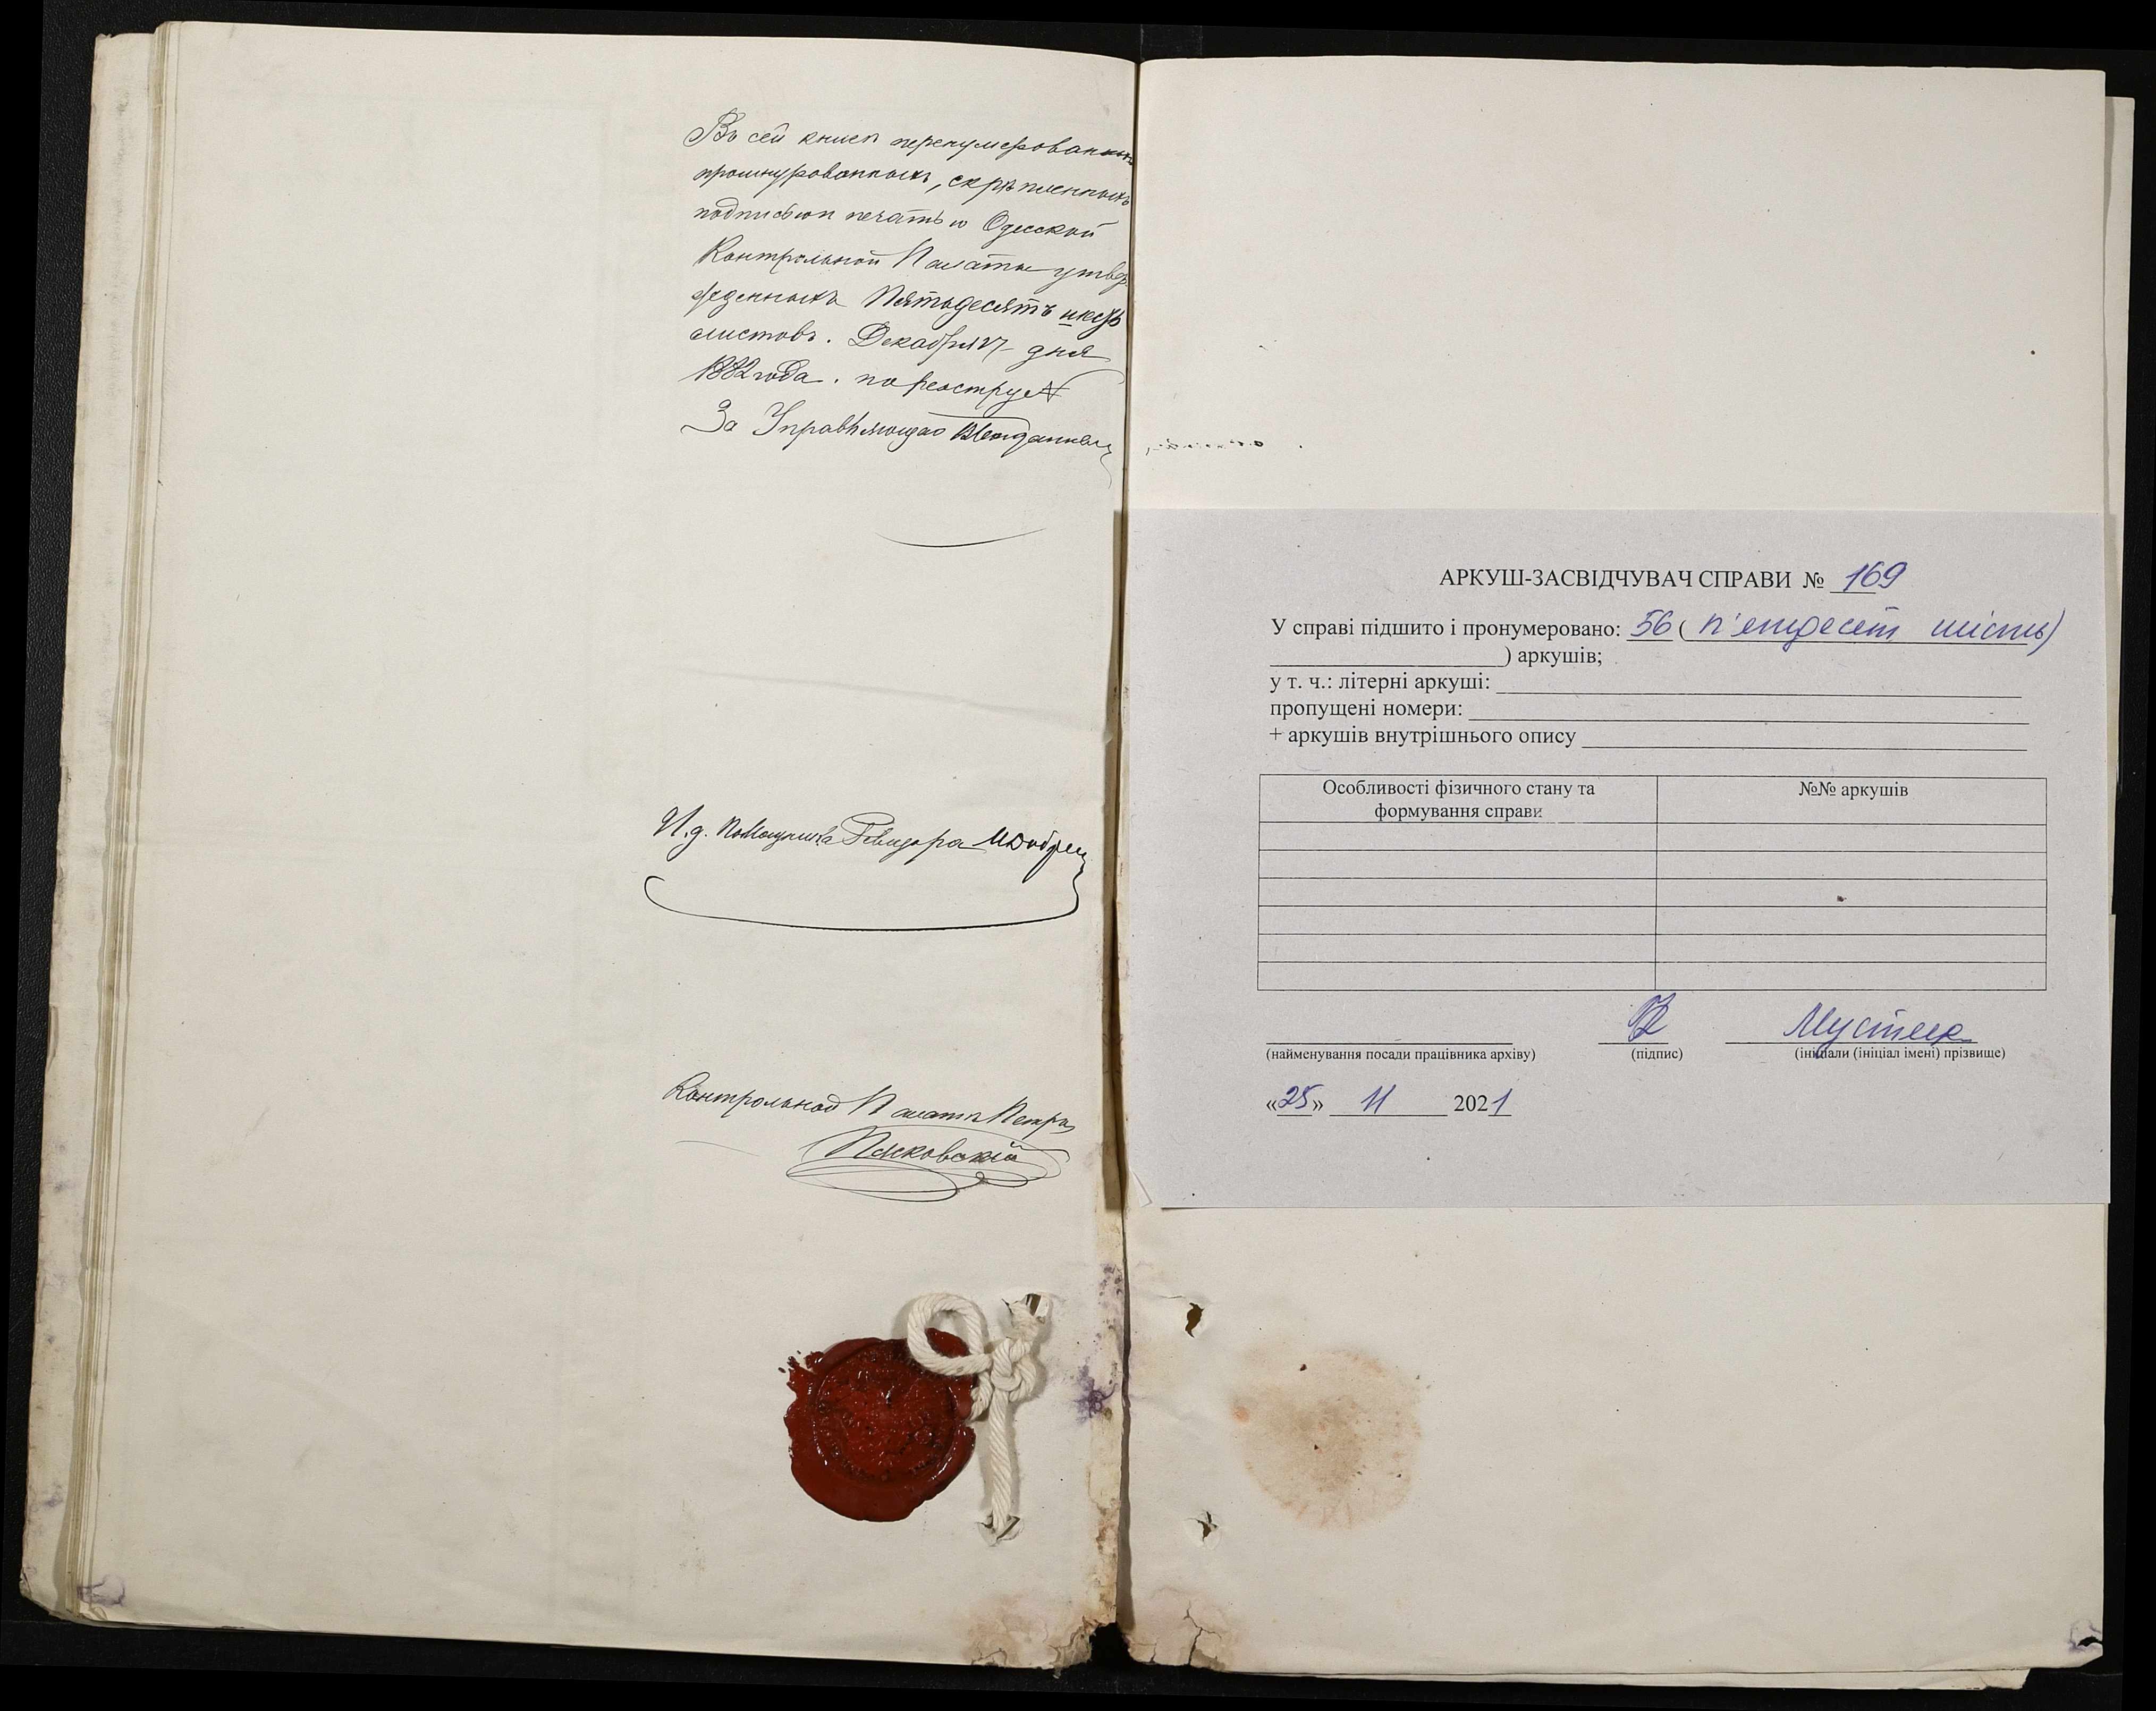 Въ сей книгѣ перенумерованныхъ
прошнурованныхъ, скрѣпленныхъ
подписью и печатью Одесской
Контрольной Палаты утвер
жденныхъ Пятьдесятъ шесть
листовъ. Декабря 17 дня
1882 года. по реэстру №
За Управляющаго
И. д. Помощника Ревизора
Контрольной Палаты Петръ
Пясковскій
АРКУШ-ЗАСВІДЧУВАЧ СПРАВИ № 169
У справі підшито і пронумеровано: 56 ( п'ятдесят шість)
) аркушів;
у т. ч.: літерні аркуші:
пропущені номери:
+ аркушів внутрішнього опису
Особливості фізичного стану та
формування справи
№№ аркушів
Мустяк
(найменування посади працівника архіву) (підпис) (ініціали (ініціал імені) прізвище)
«25» 11 2021